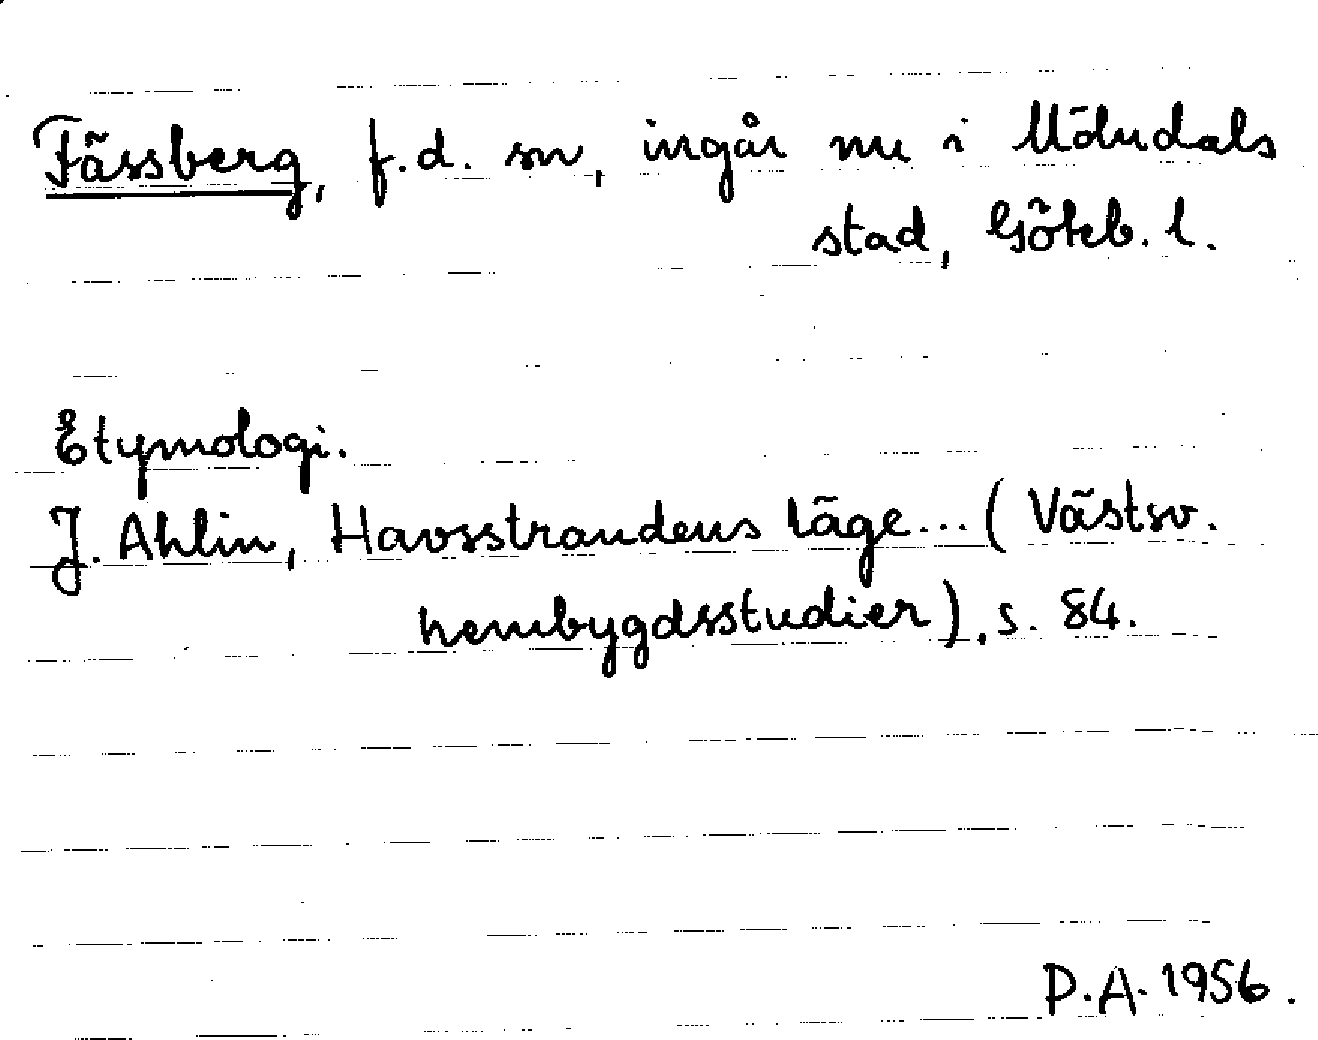 Fässberg, f.d. sn, ingår nu i Mölndals
stad, Göteb. l.
Etymologi.
J. Ahlin, Havsstrandens läge... (Västsv.
hembygdsstudier), s. 84.
P.A. 1956.